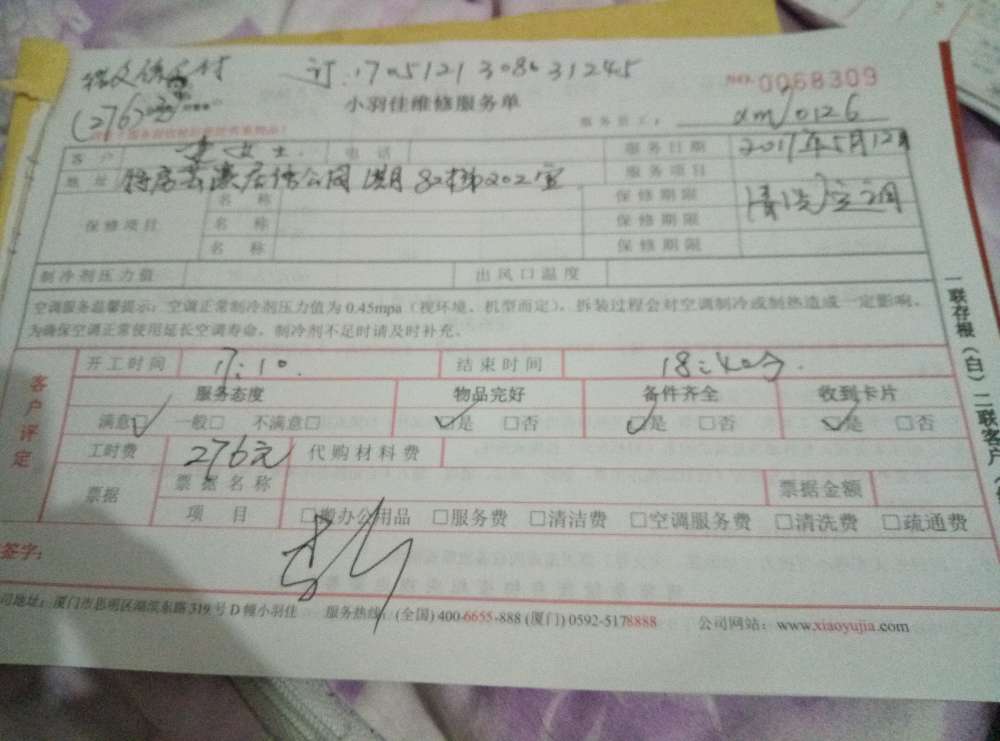 订170512130863 1245
(276)元
小羽佳维修服务单
NO. 0068309
服务员工: xm/0126
客户 李女士 电话 服务日期 2017年5月12日
地址 802梯202室 服务项目 清洗空调
保修项目
名称 保修期限
名称 保修期限
名称 保修期限
制冷剂压力值 出风口温度
空调服务温馨提示:空调正常制冷剂压力值为0.45mpa(视环境、机型而定),拆装过程会对空调制冷或制热造成一定影响。
为确保空调正常使用延长空调寿命。制冷剂不足时请及时补充。
客户评定
开工时间 17:10. 结束时间 18:40分.
服务态度 物品完好 备件齐全 收到卡片
满意□ 一般□ 不满意□ □是 □否 □是 □否 □是 □否
工时费 276元 代购材料费
票据 票据名称 票据金额
项目 □搬办公用品 □服务费 □清洁费 □空调服务费 □清洗费 □疏通费
签字:
司地址:厦门市思明区湖滨东路319号D幢小羽佳 服务热线:(全国)400-6655-888 (厦门)0592-5178888 公司网站:www.xiaoyujia.com
一联存根(白)二联客户(